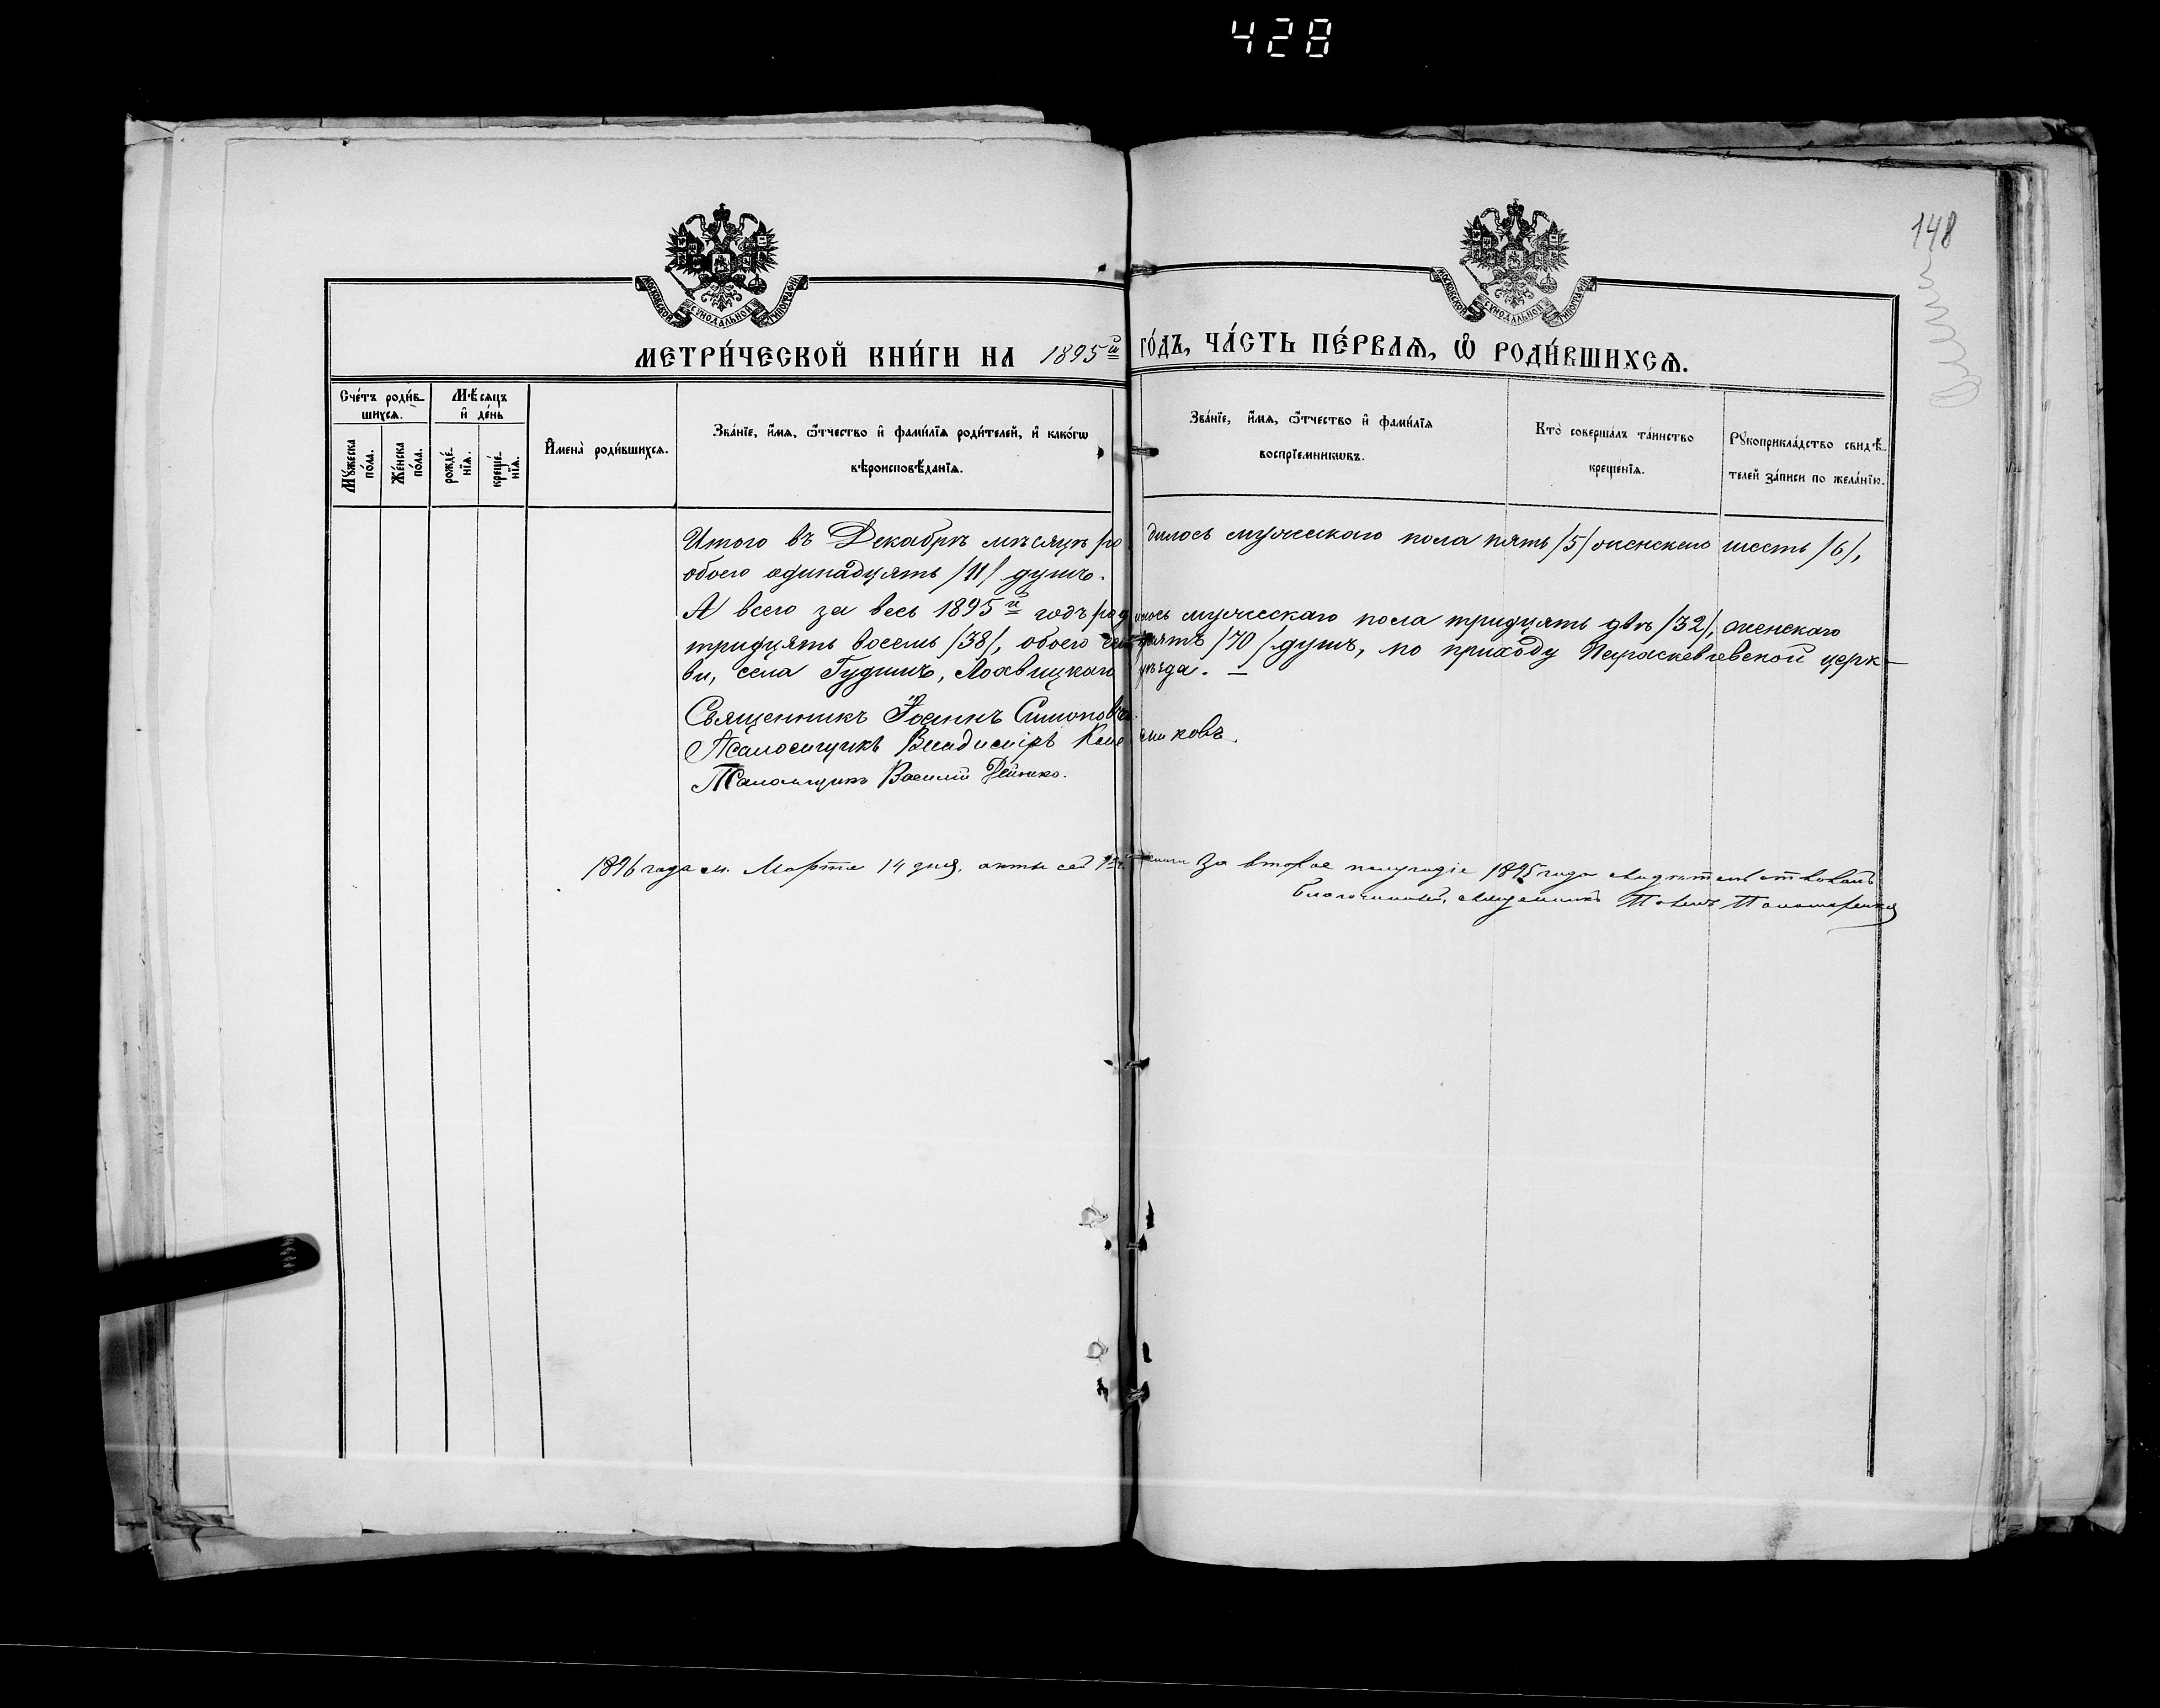 428
148
МОСКОВСКОЙ СѴНОДАЛЬНОЙ ТИПОГРАФІИ
МОСКОВСКОЙ СѴНОДАЛЬНОЙ ТИПОГРАФІИ
МЕТРИ́ЧЕСКОЙ КНИ́ГИ НА 1895й го́дъ, ча́сть пе́рвая, ѡ҆ роди́вшихсѧ.
Сче́тъ роди́в-
шихся.
Мѣ́сяцъ
и҆ де́нь
Мꙋжеска
по́ла.
Же́нска
по́ла.
рожде́-
нїя.
креще́-
нїя.
И҆мена̀ роди́вшихся.
Зва́нїе, и҆́мя, ѻ҆́тчество и҆ фами́лїя роди́телей, и҆ како́гѡ
вѣроисповѣ́данїя.
Зва́нїе, и҆́мя, ѻ҆́тчество и҆ фами́лїя
воспрїе́мникѡвъ.
Кто̀ соверша́лъ та́инство
креще́нїя.
Рꙋкоприкла́дство свидѣ́-
телей за́писи по жела́нїю.
Итого въ Декабрѣ мѣсяцѣ родилось мужескаго пола пять /5/ женскаго шесть /6/,
обоего одинадцять /11/ душъ.
А всего за весь 1895й годъ родилось мужескаго пола тридцять двѣ /32/, женскаго
тридцять восемь /38/, обоего /70/ душъ, по приходу Параскевіевской церк-
ви, села Гудимъ, Лохвицкаго уѣзда. —
Священникъ Іоаннъ Симоновъ.
Псаломщикъ Владиміръ
Псаломщикъ Василій Дейнеко.
1896 года м. Марта 14 дня, акты сей книги за второе полугодіе 1895 года свидѣтельствовалъ
Благочинный, священникъ Павелъ Пономаренко